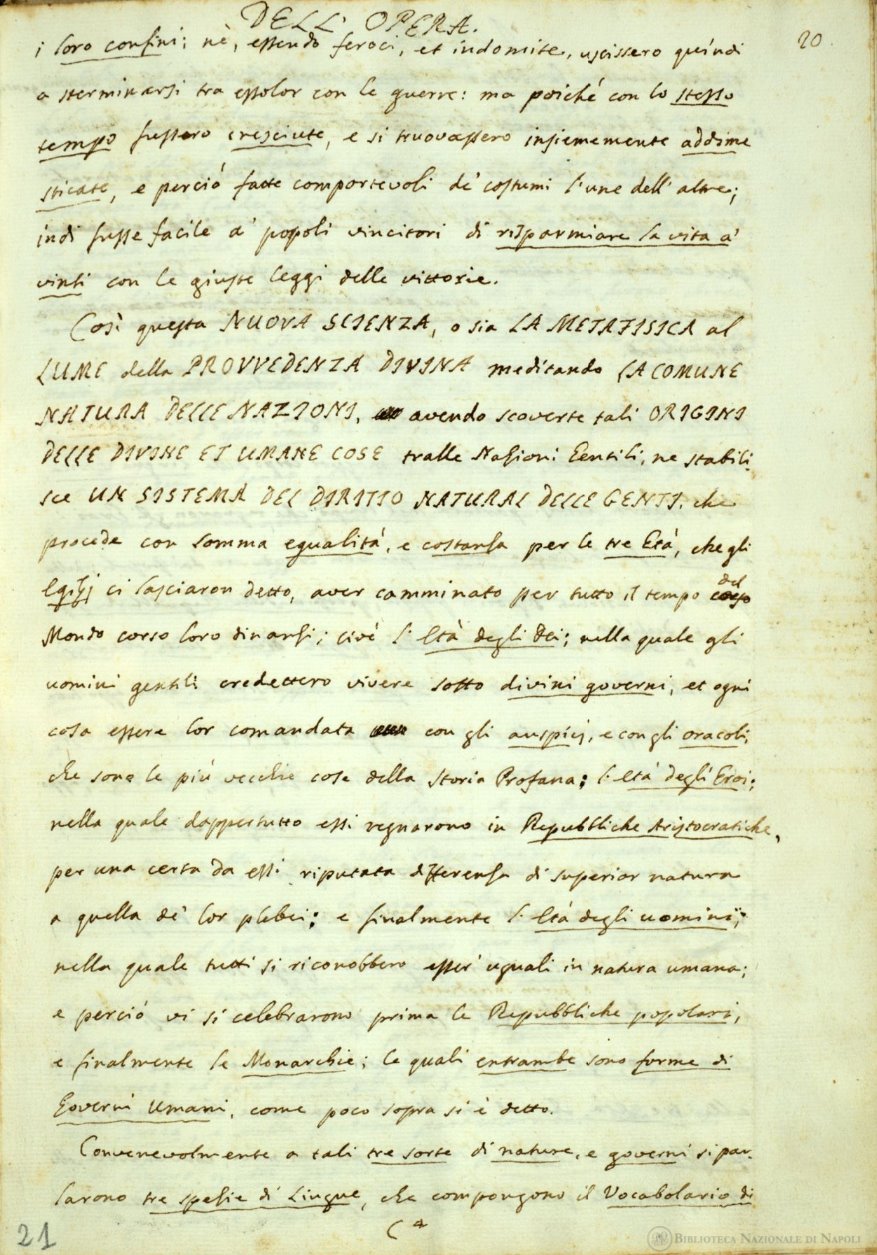 DELL' OPERA.
20
i loro confini; nè, essendo feroci, et indomite, uscissero quindi
a sterminarsi tra essolor con le guerre: ma poiché con lo stesso
tempo fussero cresciute, e si truovassero insiememente addime
sticate, e perciò fatte comportevoli de' costumi l'une dell' altre;
indi fusse facile a' popoli vincitori di risparmiare la vita a'
vinti con le giuste leggi delle vittorie.
Così questa NUOVA SCIENZA, o sia LA METAFISICA al
LUME della PROVVEDENZA DIVINA meditando LA COMUNE
NATURA DELLE NAZIONI, avendo scoverte tali ORIGINI
DELLE DIVINE ET UMANE COSE tralle Nazioni Gentili, ne stabili
sce UN SISTEMA DEL DIRITTO NATURAL DELLE GENTI, che
procede con somma egualità, e costanza per le tre Età, che gli
Egizj ci lasciaron detto, aver camminato per tutto il tempo del
Mondo corso loro dinanzi; cioè l'Età degli Dei; nella quale gli
uomini gentili credettero vivere sotto divini governi, et ogni
cosa essere lor comandata con gli auspicj, e con gli oracoli;
che sono le più vecchie cose della Storia Profana: l'Età degli Eroi;
nella quale dappertutto essi regnarono in Repubbliche Aristocratiche,
per una certa da essi riputata differenza di superior natura
a quella de' lor plebei: e finalmente l'Età degli uomini;
nella quale tutti si riconobbero esser' uguali in natura umana;
e perciò vi si celebrarono prima le Repubbliche popolari,
e finalmente le Monarchie; le quali entrambe sono forme di
Governi Umani, come poco sopra si è detto.
Convenevolmente a tali tre sorte di nature, e governi si par-
larono tre spezie di Lingue, che compongono il Vocabolario di
21
BIBLIOTECA NAZIONALE DI NAPOLI